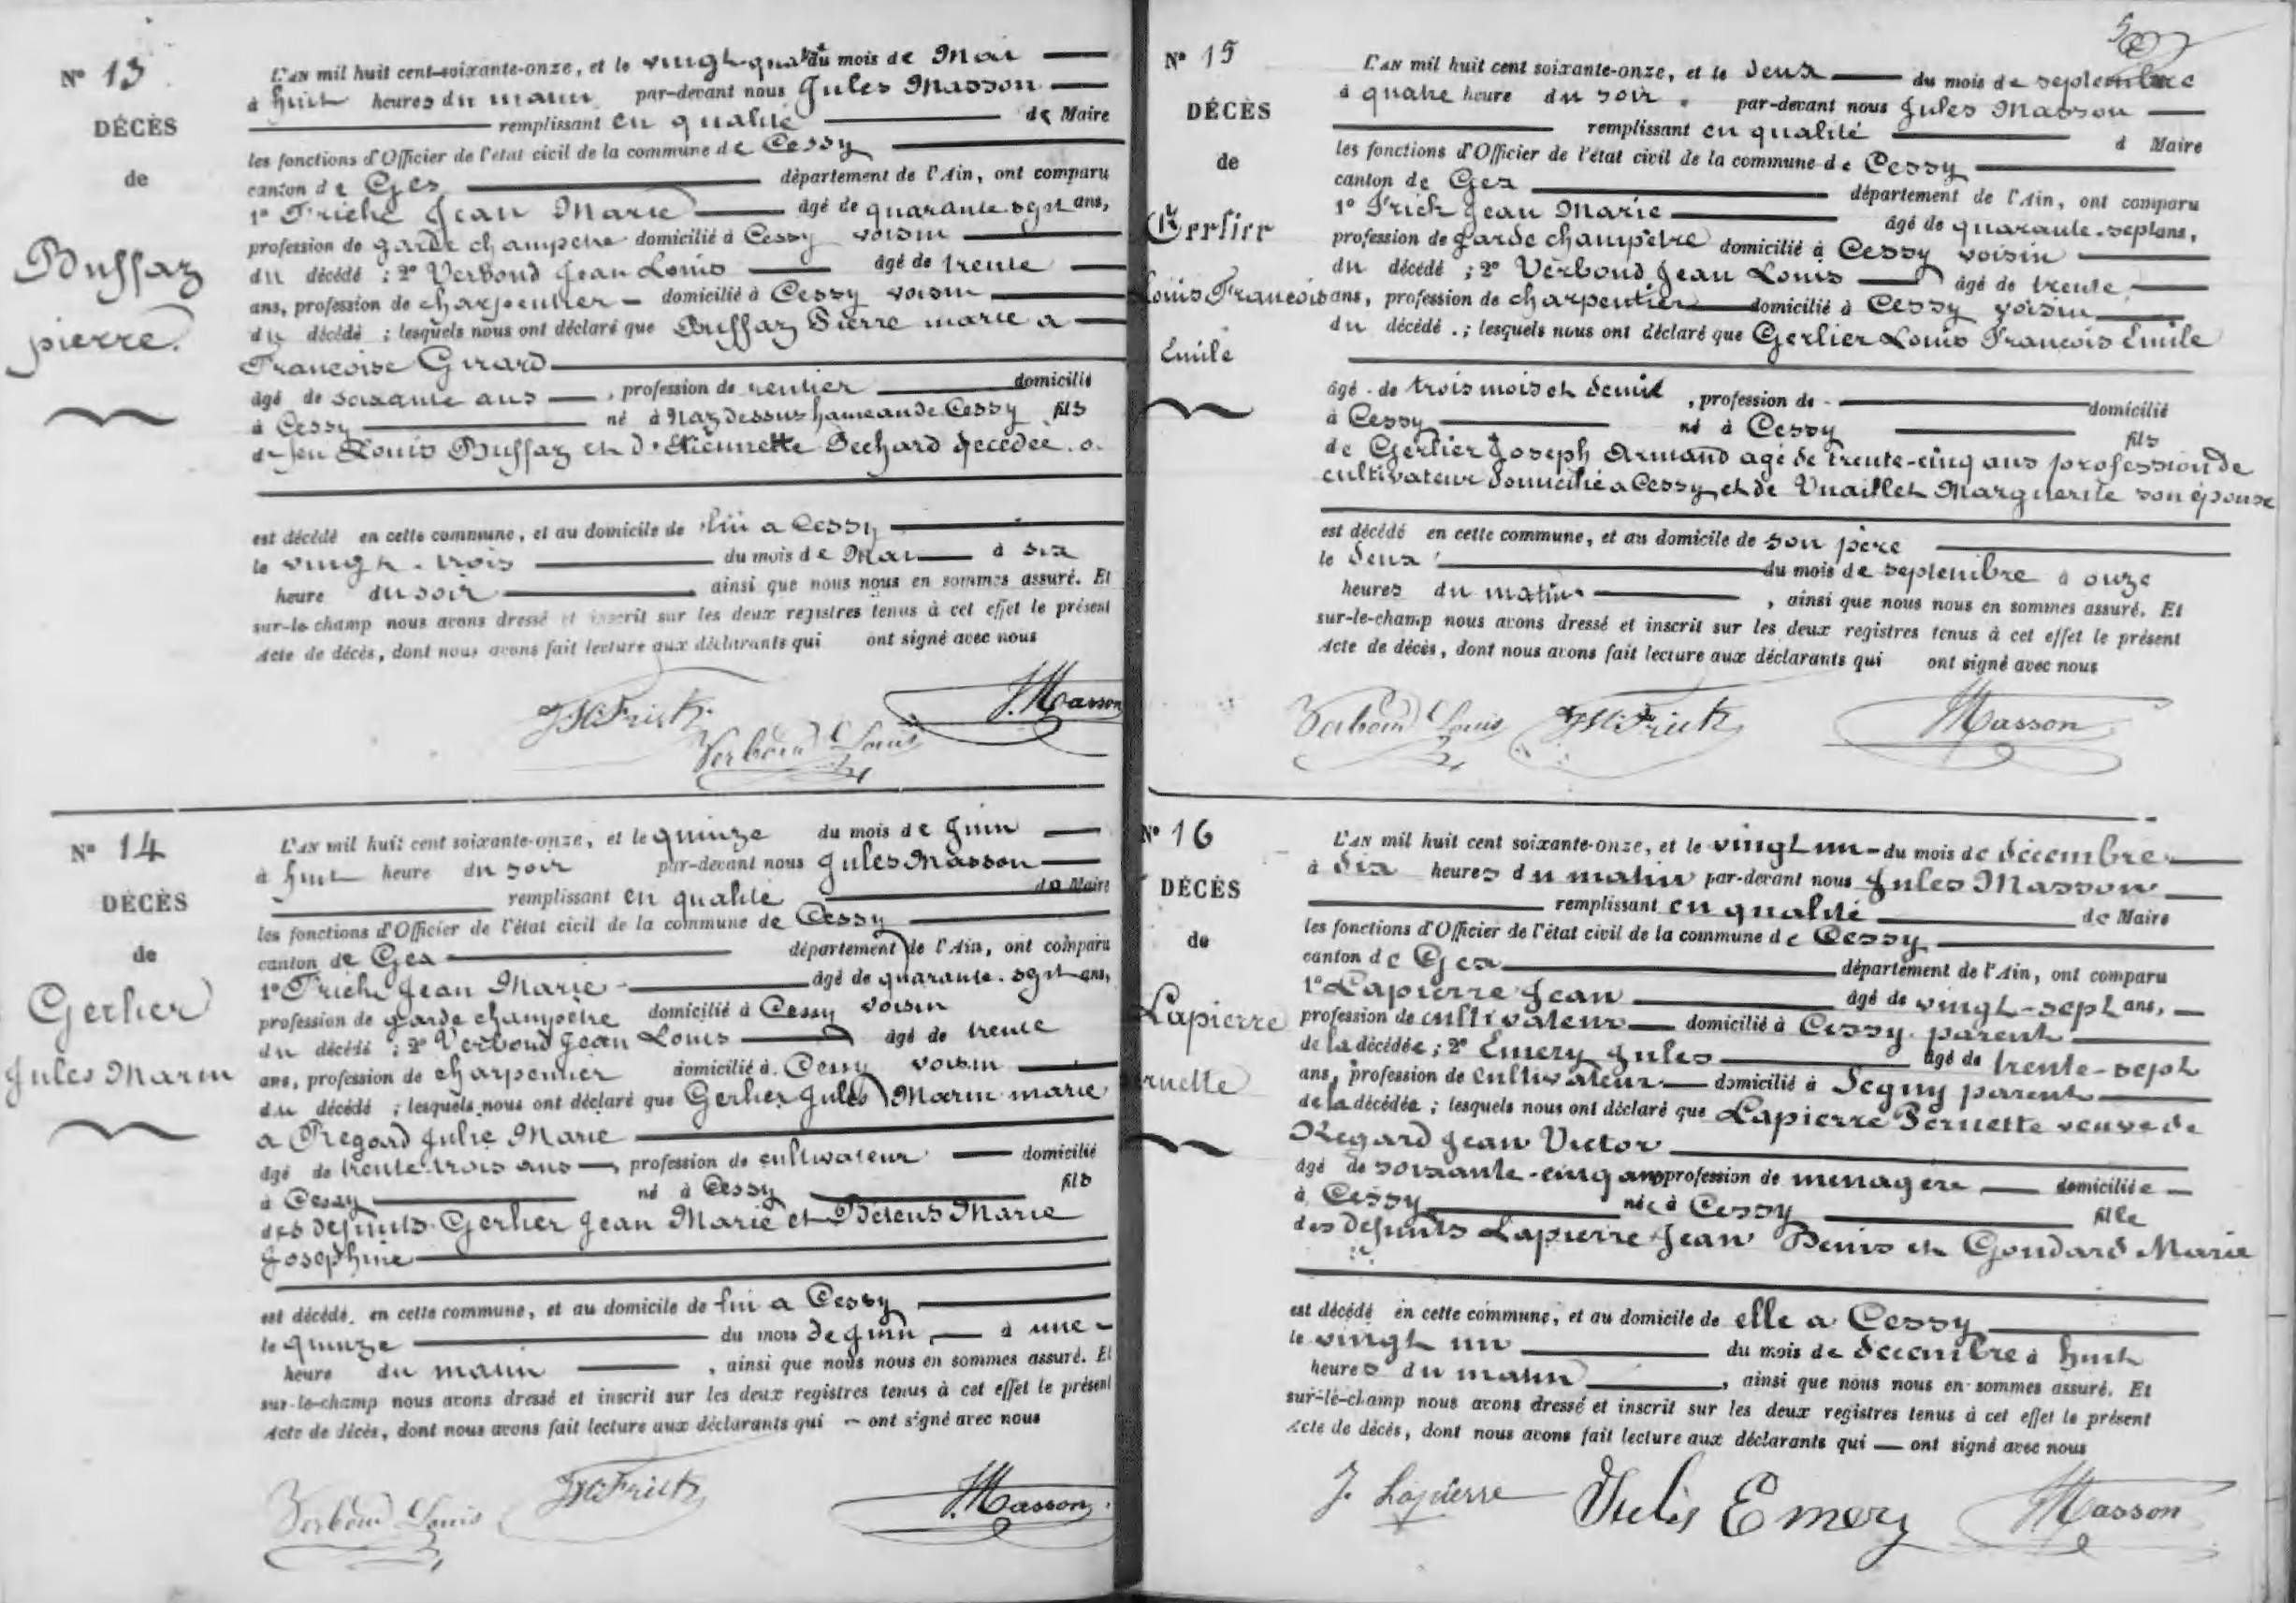 Nº 13
DÉCÈS
de
Buffaz
pierre
L'AN mil huit cent soixante-onze, et le vingt-quatre du mois de Mai
à huit heures du matin par-devant nous Jules Masson
remplissant en qualité de Maire
les fonctions d'Officier de l'état civil de la commune de Cessy
canton de Gex département de l'Ain, ont comparu
1º Friche Jean Marie âgé de quarante-sept ans,
profession de garde champetre domicilié à Cessy voisin
du décédé ; 2º Verboud Jean Louis âgé de trente
ans, profession de charpentier domicilié à Cessy voisin
du décédé ; lesquels nous ont déclaré que Buffaz Pierre marié a
Francoise Girard
âgé de soixante ans , profession de rentier domicilié
à Cessy né à Naz dessus hameau de Cessy fils
de feu Louis Buffaz et d'Etiennette Dechard décédée
est décédé en cette commune, et au domicile de lui a Cessy
le vingt-trois du mois de Mai à six
heure du soir ainsi que nous nous en sommes assuré. Et
sur-le-champ nous avons dressé et inscrit sur les deux registres tenus à cet effet le présent
Acte de décès, dont nous avons fait lecture aux déclarants qui ont signé avec nous
JM Frick
Verboud Louis
J. Masson
Nº 14
DÉCÈS
de
Gerlier
Jules Marin
L'AN mil huit cent soixante-onze, et le quinze du mois de Juin
à huit heure du soir par-devant nous Jules Masson
remplissant en qualité de Maire
les fonctions d'Officier de l'état civil de la commune de Cessy
canton de Gex département de l'Ain, ont comparu
1º Friche Jean Marie âgé de quarante-sept ans,
profession de garde champêtre domicilié à Cessy voisin
du décédé ; 2º Verboud Jean Louis âgé de trente
ans, profession de charpentier domicilié à Cessy voisin
du décédé ; lesquels nous ont déclaré que Gerlier Jules Marin marié
a Regard Julie Marie
âgé de trente-trois ans , profession de cultivateur domicilié
à Cessy né à Cessy fils
des defunts Gerlier Jean Marie et Marie
Josephine
est décédé en cette commune, et au domicile de lui a Cessy
le quinze du mois de Juin à une
heure du matin , ainsi que nous nous en sommes assuré. Et
sur-le-champ nous avons dressé et inscrit sur les deux registres tenus à cet effet le présent
Acte de décès, dont nous avons fait lecture aux déclarants qui ont signé avec nous
Verboud Louis
JM Frick
J. Masson
Nº 15
DÉCÈS
de
Gerlier
Louis Francois
Emile
L'AN mil huit cent soixante-onze, et le deux du mois de septembre
à quatre heure du soir par-devant nous Jules Masson
remplissant en qualité d Maire
les fonctions d'Officier de l'état civil de la commune de Cessy
canton de Gex département de l'Ain, ont comparu
1º Frich Jean Marie âgé de quarante-sept ans,
profession de garde champêtre domicilié à Cessy voisin
du décédé ; 2º Verboud Jean Louis âgé de trente
ans, profession de charpentier domicilié à Cessy voisin
du décédé ; lesquels nous ont déclaré que Gerlier Louis Francois Emile
âgé de trois mois et demie , profession de domicilié
à Cessy né à Cessy fils
de Gerlier Joseph Armand agé de trente-cinq ans profession de
cultivateur domicilié a Cessy et de Vuaillet Marguerite son épouse
est décédé en cette commune, et au domicile de son père
le deux du mois de septembre à onze
heures du matin , ainsi que nous nous en sommes assuré. Et
sur-le-champ nous avons dressé et inscrit sur les deux registres tenus à cet effet le présent
Acte de décès, dont nous avons fait lecture aux déclarants qui ont signé avec nous
Verboud Louis
JM Frick
J Masson
Nº 16
DÉCÈS
de
Lapierre
L'AN mil huit cent soixante-onze, et le vingt un du mois de décembre
à dix heures du matin par-devant nous Jules Masson
remplissant en qualité de Maire
les fonctions d'Officier de l'état civil de la commune de Cessy
canton de Gex département de l'Ain, ont comparu
1º Lapierre Jean âgé de vingt-sept ans,
profession de cultivateur domicilié à Cessy parent
de la décédée ; 2º Emery Jules âgé de trente-sept
ans, profession de cultivateur domicilié à Segny parent
de la décédée ; lesquels nous ont déclaré que Lapierre Pernette veuve de
Regard Jean Victor
âgé de soixante-cinq ans profession de menagère domiciliée
à Cessy née à Cessy fille
des defunts Lapierre Jean Denis et Goudard Marie
est décédé en cette commune, et au domicile de elle a Cessy
le vingt un du mois de décembre à huit
heures du matin , ainsi que nous nous en sommes assuré. Et
sur-le-champ nous avons dressé et inscrit sur les deux registres tenus à cet effet le présent
Acte de décès, dont nous avons fait lecture aux déclarants qui ont signé avec nous
J. Lapierre
Jules Emery
J Masson